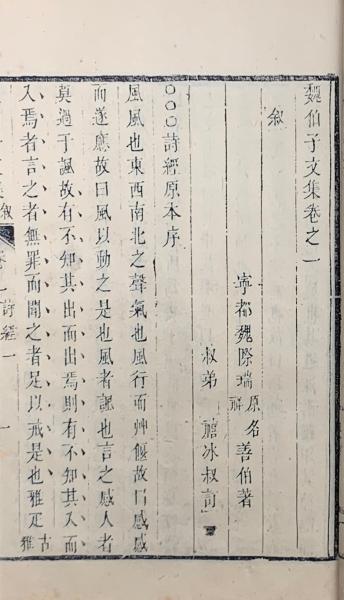 魏伯子文集卷之一
叙
寧都魏際瑞原名祥善伯著
叔弟禧冰叔訂
○○○詩經原本序
風風也東西南北之聲氣也風行而艸偃故曰感感
而遂應故曰風以動之是也風者諷也言之感人者
莫過于諷故有不知其出而出焉則有不知其入而
入焉者言之者無罪而聞之者足以戒是也雅疋古雅
叙
卷一詩經
一